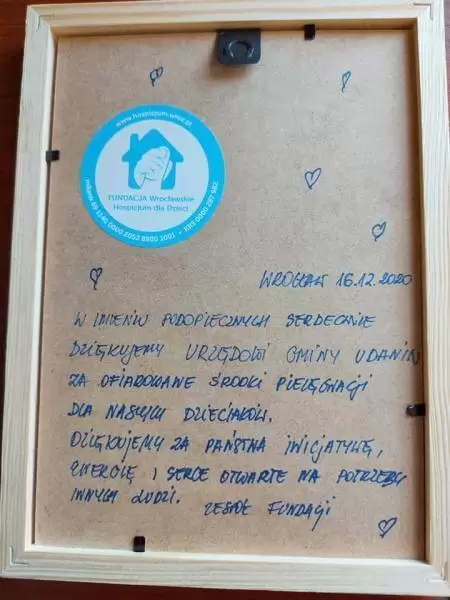 www.hospicjum.wroc.pl
FUNDACJA Wrocławskie
Hospicjum dla Dzieci
mBank 89 1140 0000 2052 8800 1001 • KRS 0000 287 982
WROCŁAW 16.12.2020
W IMIENIU PODOPIECZNYCH SERDECZNIE
DZIĘKUJEMY URZĘDOWI GMINY UDANIN
ZA OFIAROWANE ŚRODKI PIELĘGNACJI
DLA NASZYCH DZIECIAKÓW.
DZIĘKUJEMY ZA PAŃSTWA INICJATYWĘ,
ENERGIĘ I SERCE OTWARTE NA POTRZEBY
INNYCH LUDZI.
ZESPÓŁ FUNDACJI